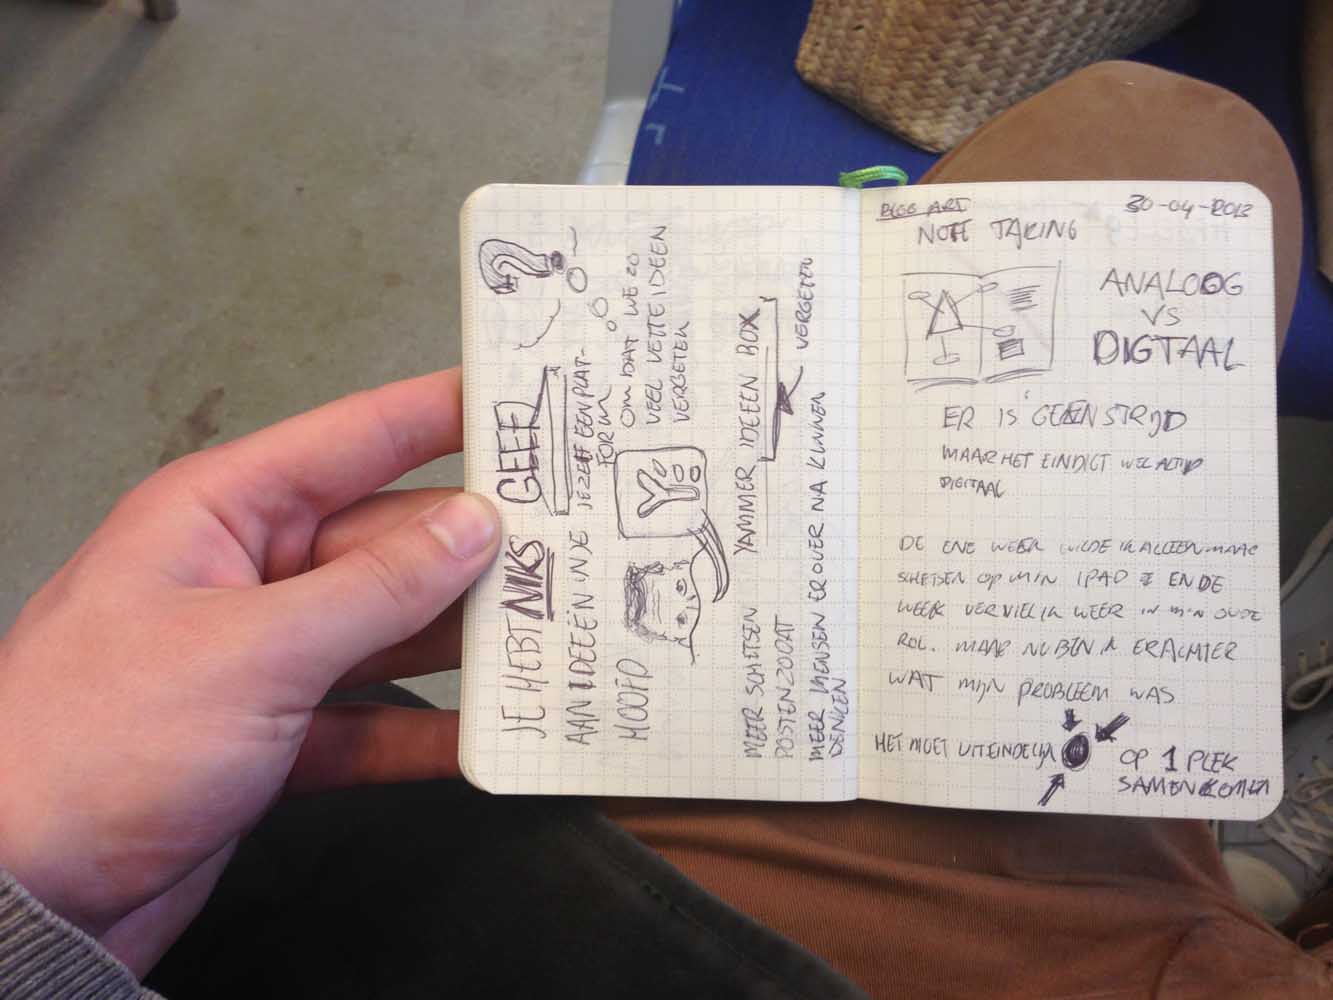 JE HEBT NIKS GEEF
AAN IDEEËN IN JE JEZELF EEN PLAT-
HOOFD FORM
OMDAT WE ZO
VEEL VETTE IDEEN
VERGETEN
Yo
YAMMER IDEEEN BOX
VERGETEN
MEER SCHETSEN
POSTEN ZODAT
MEER MENSEN EROVER NA KUNNEN
DENKEN
BLOG ART 30-04-2013
NOTE TAKING
ANALOOG
VS
DIGTAAL
ER IS GEEN STRIJD
MAAR HET EINDIGT WEL ALTIJD
DIGITAAL
DE ENE WEEK WILDE IK ALLEEN MAAR
SCHETSEN OP MIJN IPAD & EN DE
WEEK VERVIEL IK WEER IN MIJN OUDE
ROL. MAAR NU BEN IK ERACHTER
WAT MIJN PROBLEEM WAS
HET MOET UITEINDELIJK OP 1 PLEK
SAMENKOMEN